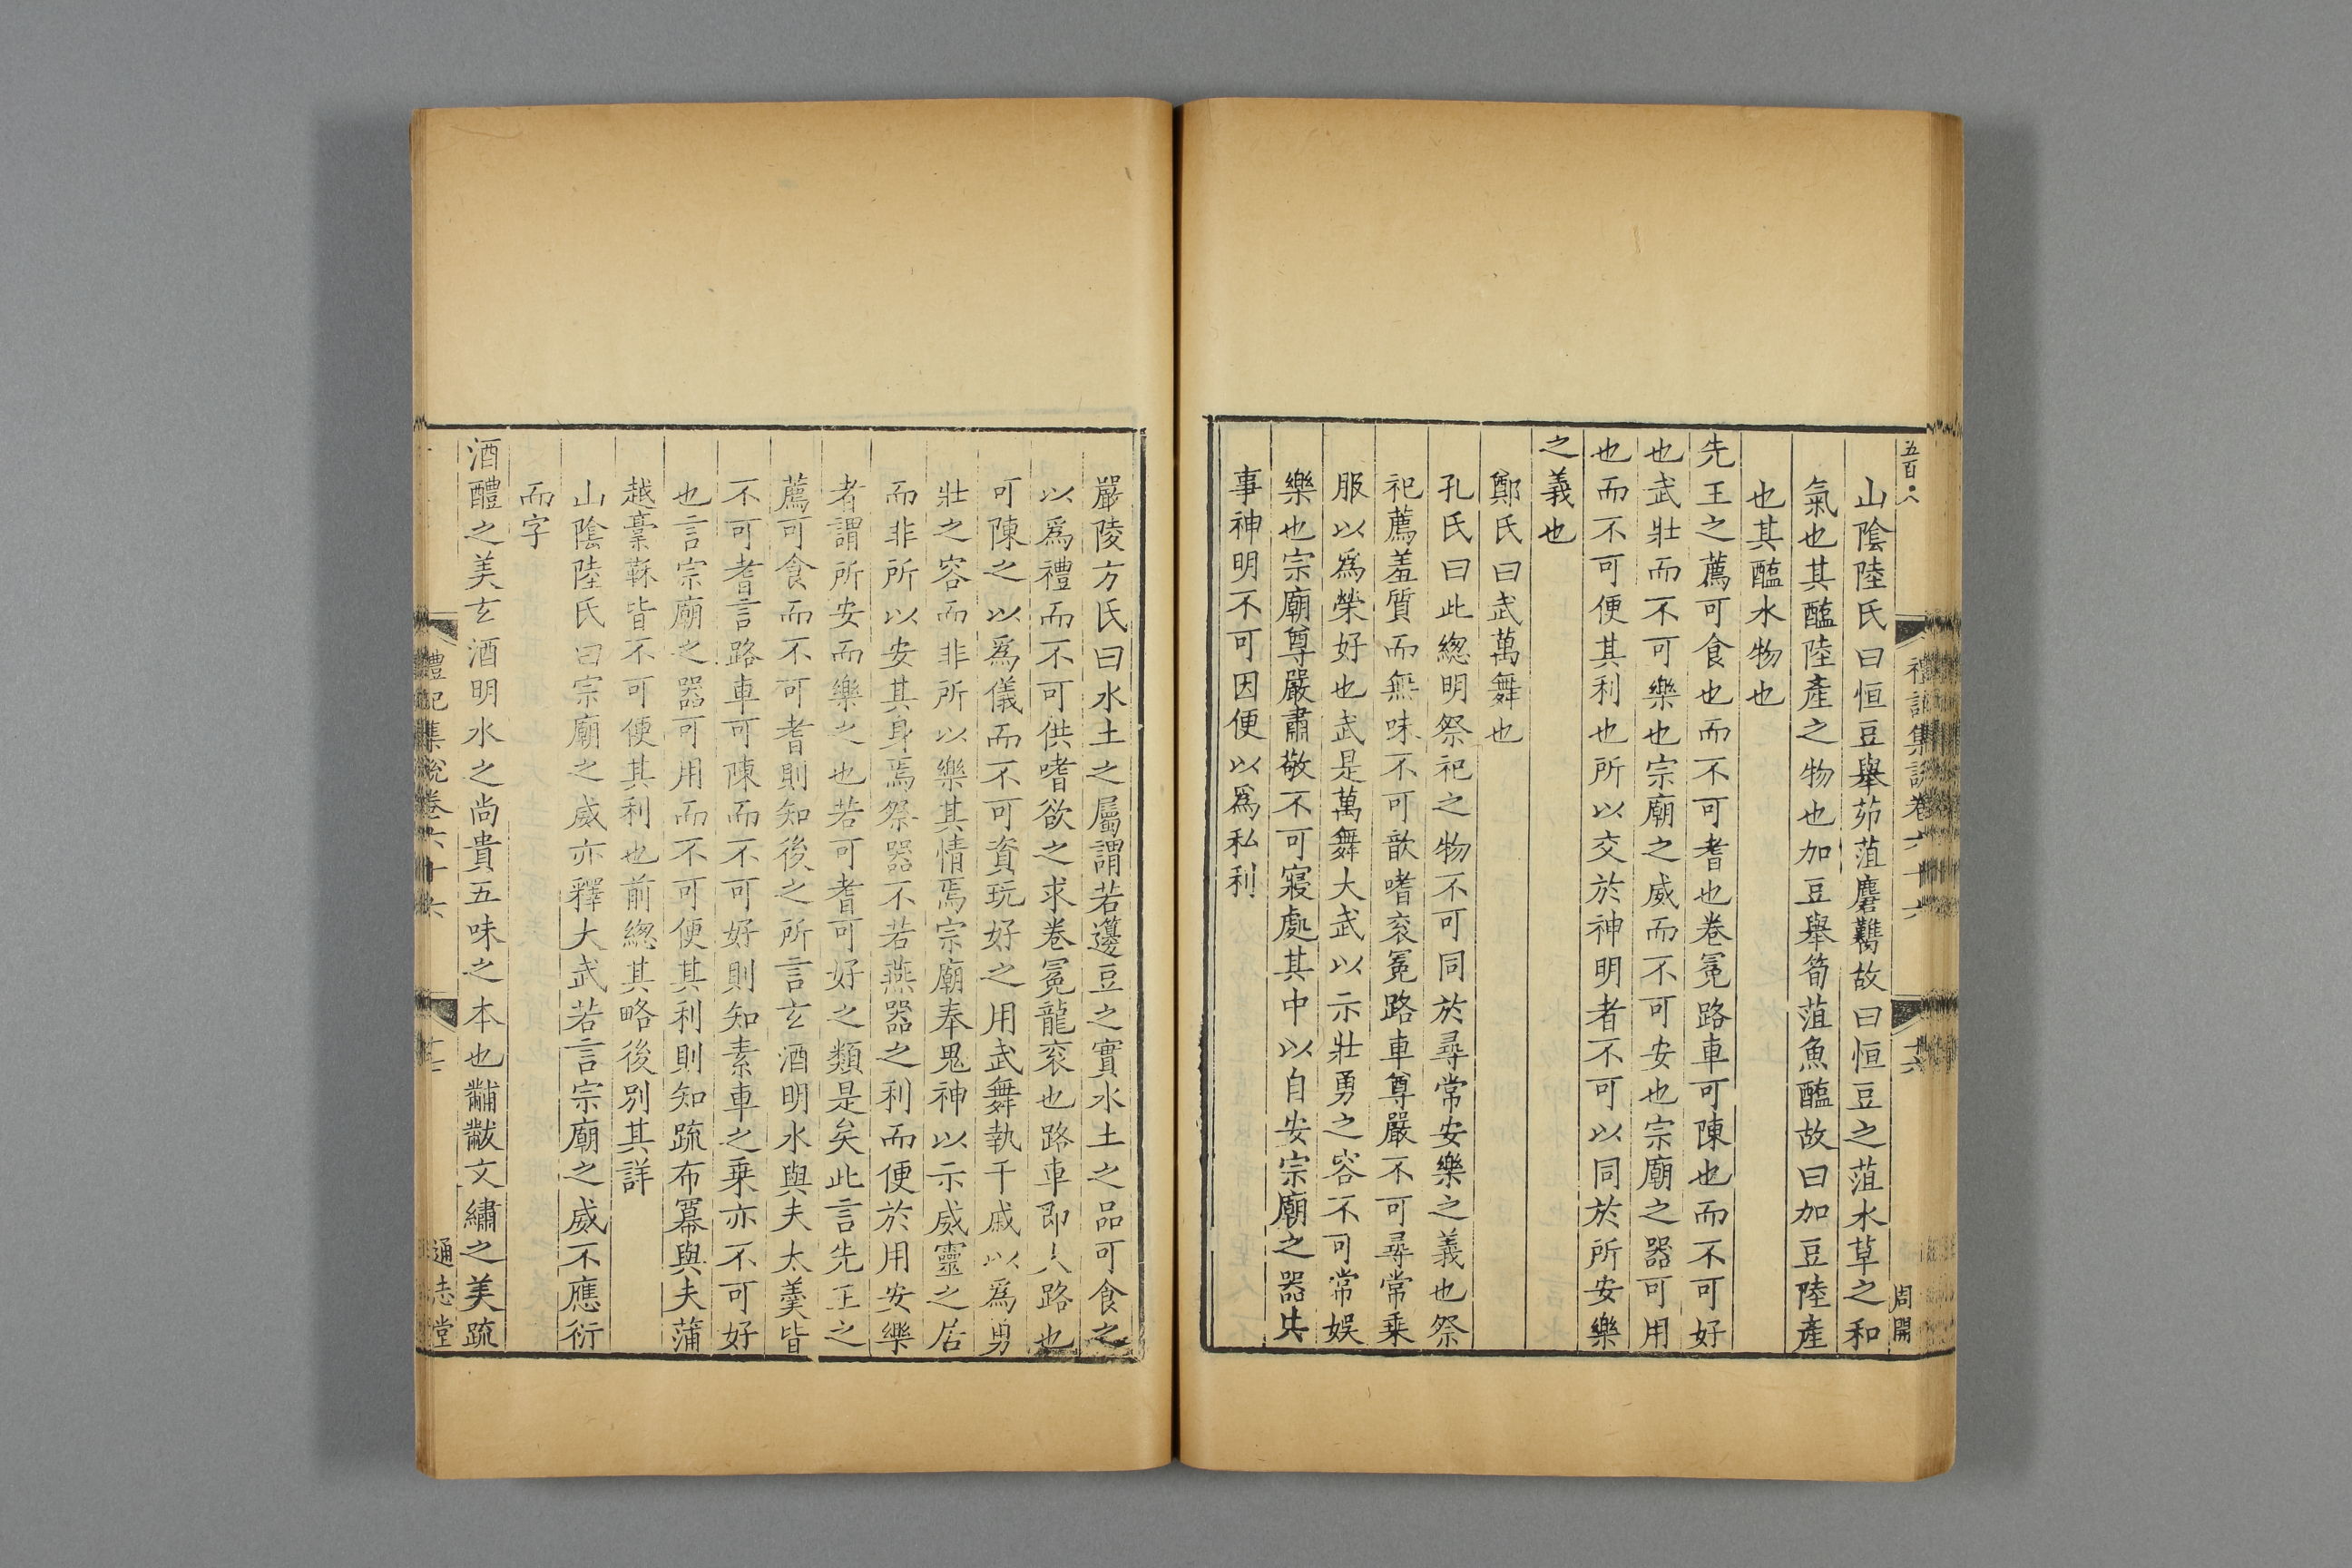 五百八
禮記集說卷六十六
十六
周開
山陰陸氏曰恒豆舉茆菹麕臡故曰恒豆之菹水草之和
氣也其醢陸產之物也加豆舉筍菹魚醢故曰加豆陸產
也其醢水物也
先王之薦可食也而不可耆也卷冕路車可陳也而不可好
也武壯而不可樂也宗廟之威而不可安也宗廟之器可用
也而不可便其利也所以交於神明者不可以同於所安樂
之義也
鄭氏曰武萬舞也
孔氏曰此緫明祭祀之物不可同於尋常安樂之義也祭
祀薦羞質而無味不可歆嗜衮冕路車尊嚴不可尋常乗
服以為榮好也武是萬舞大武以示壯勇之容不可常娛
樂也宗廟尊嚴肅敬不可寢處其中以自安宗廟之器共
事神明不可因便以為私利
嚴陵方氏曰水土之屬謂若籩豆之實水土之品可食之
以為禮而不可供嗜欲之求卷冕龍衮也路車即人路也
可陳之以為儀而不可資玩好之用武舞執干戚以為勇
壯之容而非所以樂其情焉宗廟奉鬼神以示威靈之居
而非所以安其身焉祭器不若燕器之利而便於用安樂
者謂所安而樂之也若可耆可好之類是矣此言先王之
薦可食而不可耆則知後之所言玄酒明水與夫太羹皆
不可耆言路車可陳而不可好則知素車之乗亦不可好
也言宗廟之器可用而不可便其利則知疏布冪與夫蒲
越藁鞂皆不可便其利也前緫其略後別其詳
山陰陸氏曰宗廟之威亦釋大武若言宗廟之威不應衍
而字
酒醴之美玄酒明水之尚貴五味之本也黼黻文繡之美疏
禮記集說卷六十六
通志堂